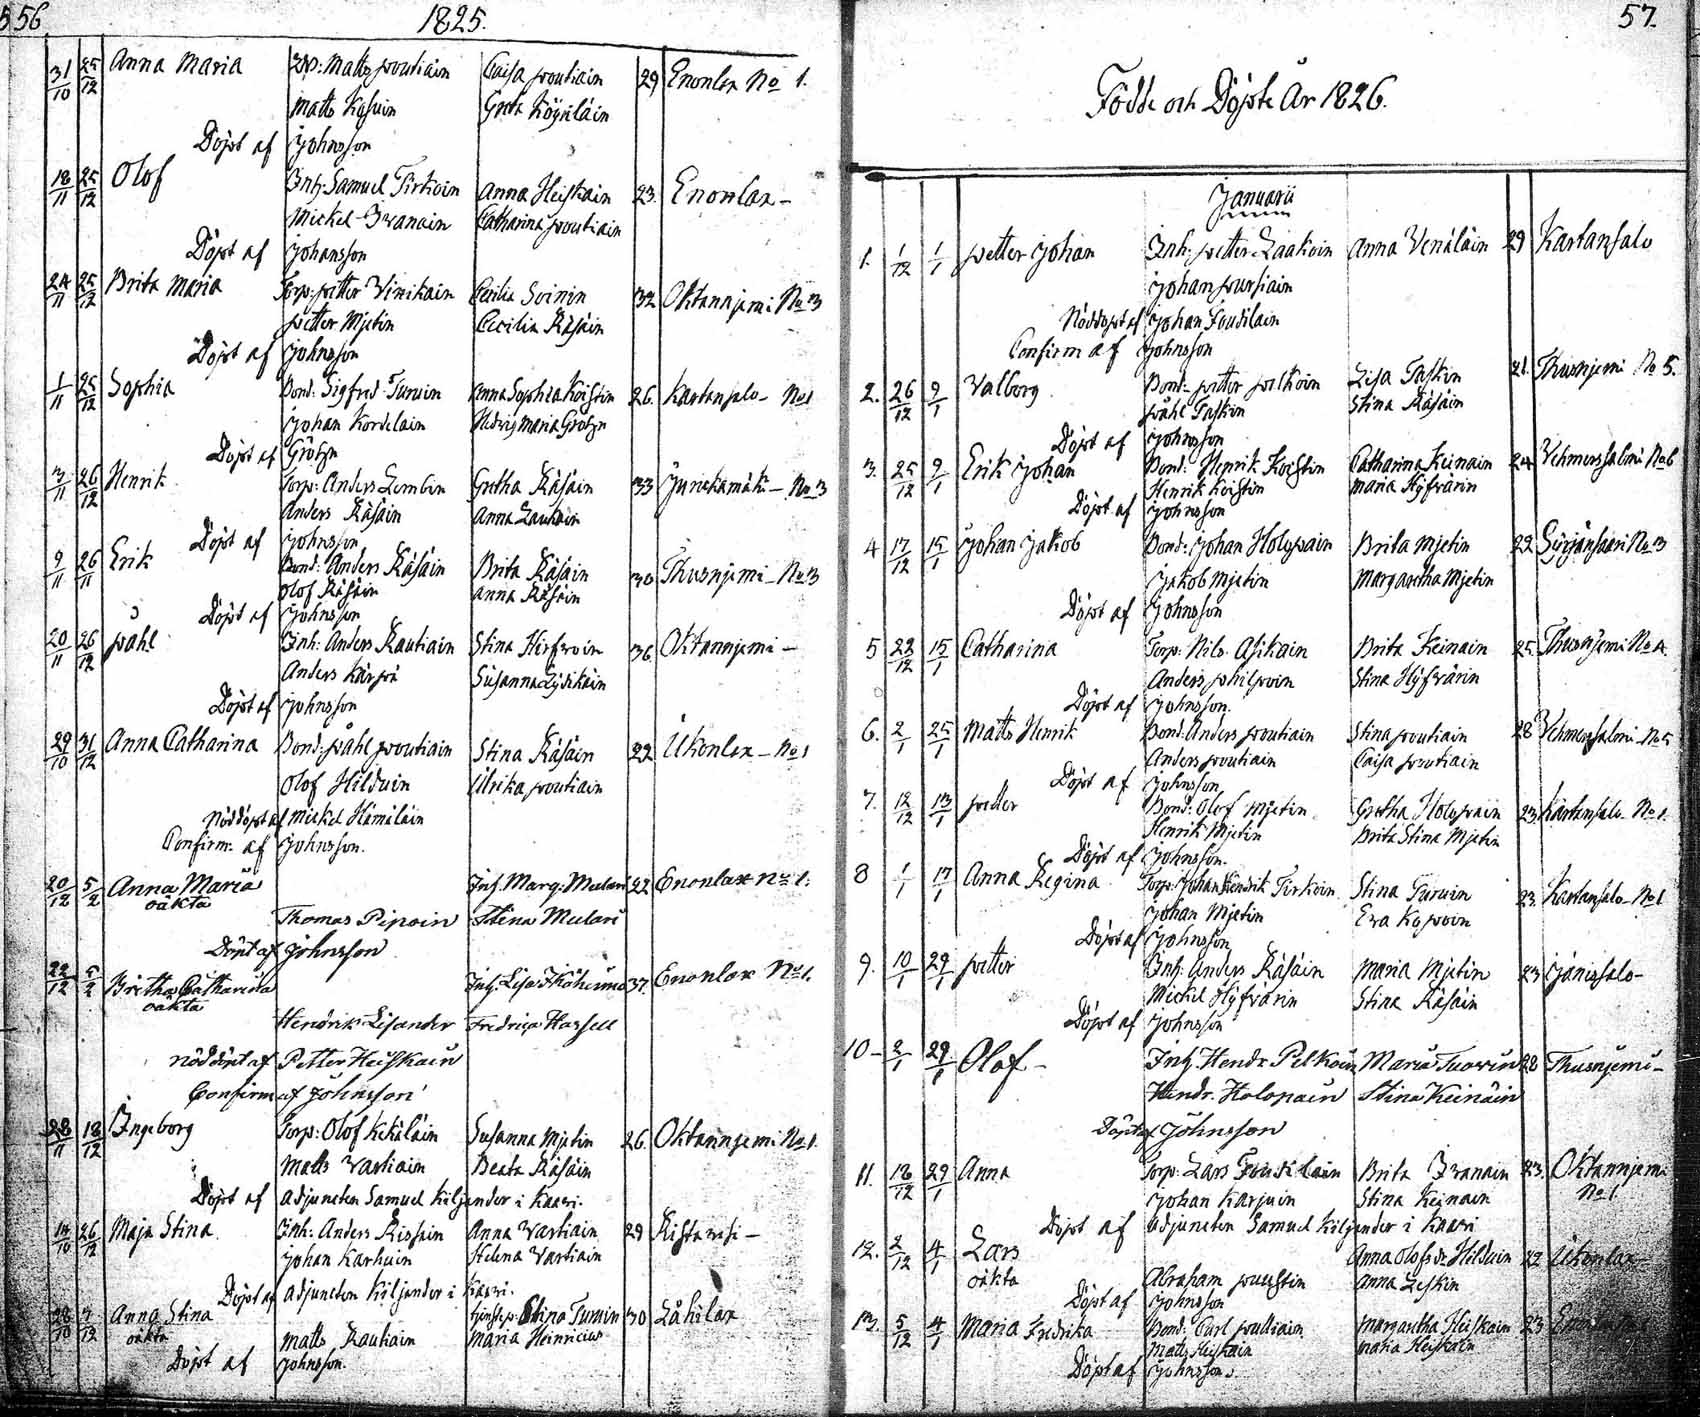 56
1825.
31/10 25/12 Anna Maria Matts Poutiain Caisa Poutiain 29 Enonlax No 1.
Matts Greta Köynläin
Döpt af Johnsson
18/11 25/12 Olof Inh: Samuel Tirkoin Anna Heiskain 23. Enonlax –
Mickel Ivanain Catharina Poutiain
Döpt af Johansson
24/11 25/12 Brita Maria Torp: Petter Vinikain Cecilia Soinin 32 Oktannjemi No 3
Petter Mjetin Cecilia Räsäin
Döpt af Johnsson
1/11 25/12 Sophia Bond: Sigfred Turuin Anna Sophia Koistin 26. Kartansalo – No 1
Johan Kordelain Hedvig Maria Grotzn
Döpt af Grotzn
3/11 26/12 Henrik Torp: Anders Lembin Gretha Räsäin 33 Jurickamäki – No 3
Anders Räsäin Anna
Döpt af Johnsson
9/11 26/11 Erik Bond: Anders Räsäin Brita Räsäin 30 Thusnjemi – No 3
Olof Räsäin Anna Räsäin
Döpt af Johnsson
20/11 26/12 Påhl Inh: Anders Rautiain Stina Hirfvoin 36 Oktannjemi –
Anders Kärpä Susanna Lyδikäin
Döpt af Johnsson
29/10 31/12 Anna Catharina Bond: Påhl Poutiain Stina Räsäin 22 Ukonlax – No 1
Olof Hilduin Ulrika Poutiain
Nöddöpt af Mickel Hämäläin
Confirm: af Johnsson.
20/12 5/2 Anna Maria Inh. Marg: Mulari 22 Enonlax No 1.
oäkta
Thomas Pipoin Stina Mulari
Döpt af Johnsson
22/12 5/2 Britha Catharina Inh: Lisa 37. Enonlax No 1.
oäkta
Hendrik Lisander Fredrica Hassell
Nöddöpt af Petter Heiskain
Confirm af Johnsson
28/11 18/12 Ingeborg Torp: Olof Kekäläin Susanna Mjetin 26. Oktannjemi No 1.
Matts Vartiain Beata Räsäin
Döpt af Adjuncten Samuel Kiljander i Kaavi.
14/10 26/12 Maja Stina Inh: Anders Rissain Anna Vartiain 29 Ristavesi –
Johan Karhuin Helena Vartiain
Döpt af Adjuncten Kiljander i Kaavi.
28/10 7/12 Anna Stina tjenstep: Stina Turuin 30 Låhilax
oäkta Matts Rautiain Maria Heinricius
Döpt af Johnsson.
57.
Födde och Döpte År 1826.
Januarii
1. 1/12 1/1 Petter Johan Inh: Petter Laakoin Anna Venäläin 29 Kartansalo
Johan Pursiain
Nöddöpt af Johan Toudilain
Confirm af Johnsson
2. 26/12 9/1 Valborg Bond: Petter Pelkoin Lisa Taskin 21. Thusnjemi No 5.
Påhl Taskin Stina Räsäin
Döpt af Johnsson
3. 25/12 9/1 Erik Johan Bond: Henrik Koistin Catharina Keinain 24 Vehmersalmi No 6
Henrik Koistin Maria Hyfvärin
Döpt af Johnsson
4 17/12 15/1 Johan Jakob Bond: Johan Holopain Brita Mjetin 22 Syrjänsaari No 3
Jakob Mjetin Margaretha Mjetin
Döpt af Johnsson
5 22/12 15/1 Catharina Torp: Nils Asikain Brita Keinain 25. Thusnjemi No 4.
Anders Philpoin Stina Hyfvärin
Döpt af Johnsson.
6. 2/1 25/1 Matts Henrik Bond: Anders Poutiain Stina Poutiain 28 Vehmersalmi No 5
Anders Poutiain Caisa Poutiain
Döpt af Johnsson
7. 12/12 13/1 Petter Bond: Olof Mjetin Gretha Holopain 23. Kartansalo No 1.
Henrik Mjetin Brita Stina Mjetin
Döpt af Johnsson.
8 1/1 17/1 Anna Regina Torp: Johan Hendrik Tirkoin Stina Turuin 23. Kartansalo – No 1
Johan Mjetin Eva Kopoin
Döpt af Johnsson
9. 10/1 29/1 Petter Inh: Anders Räsäin Maria Mjetin 23 Jänissalo –
Mickel Hyfvärin Stina Räsäin
Döpt af Johnsson
10 – 2/1 29/1 Olof – Inh: Hendr. Pelkoin Maria Tuovin 28 Thusnjemi –
Hendr. Holopain Stina Keinäin
Döpt af Johnsson
11. 18/12 29/1 Anna Torp: Lars Touδilain Brita Ivanain 23. Oktannjemi
No 1
Johan Karjuin Stina Keinain
Döpt af Adjuncten Samuel Kiljander i Kaavi
12. 2/12 4/1 Lars Anna Olofsdr Hilduin 22 Ukonlax
oäkta Abraham Puustin Anna Leskin
Döpt af Johnsson
13. 5/12 4/1 Maria Fredrika Bond: Carl Poutiain Margaretha Heiskain 23
Matts Heiskain Maria Heiskain
Döpt af Johnsson.